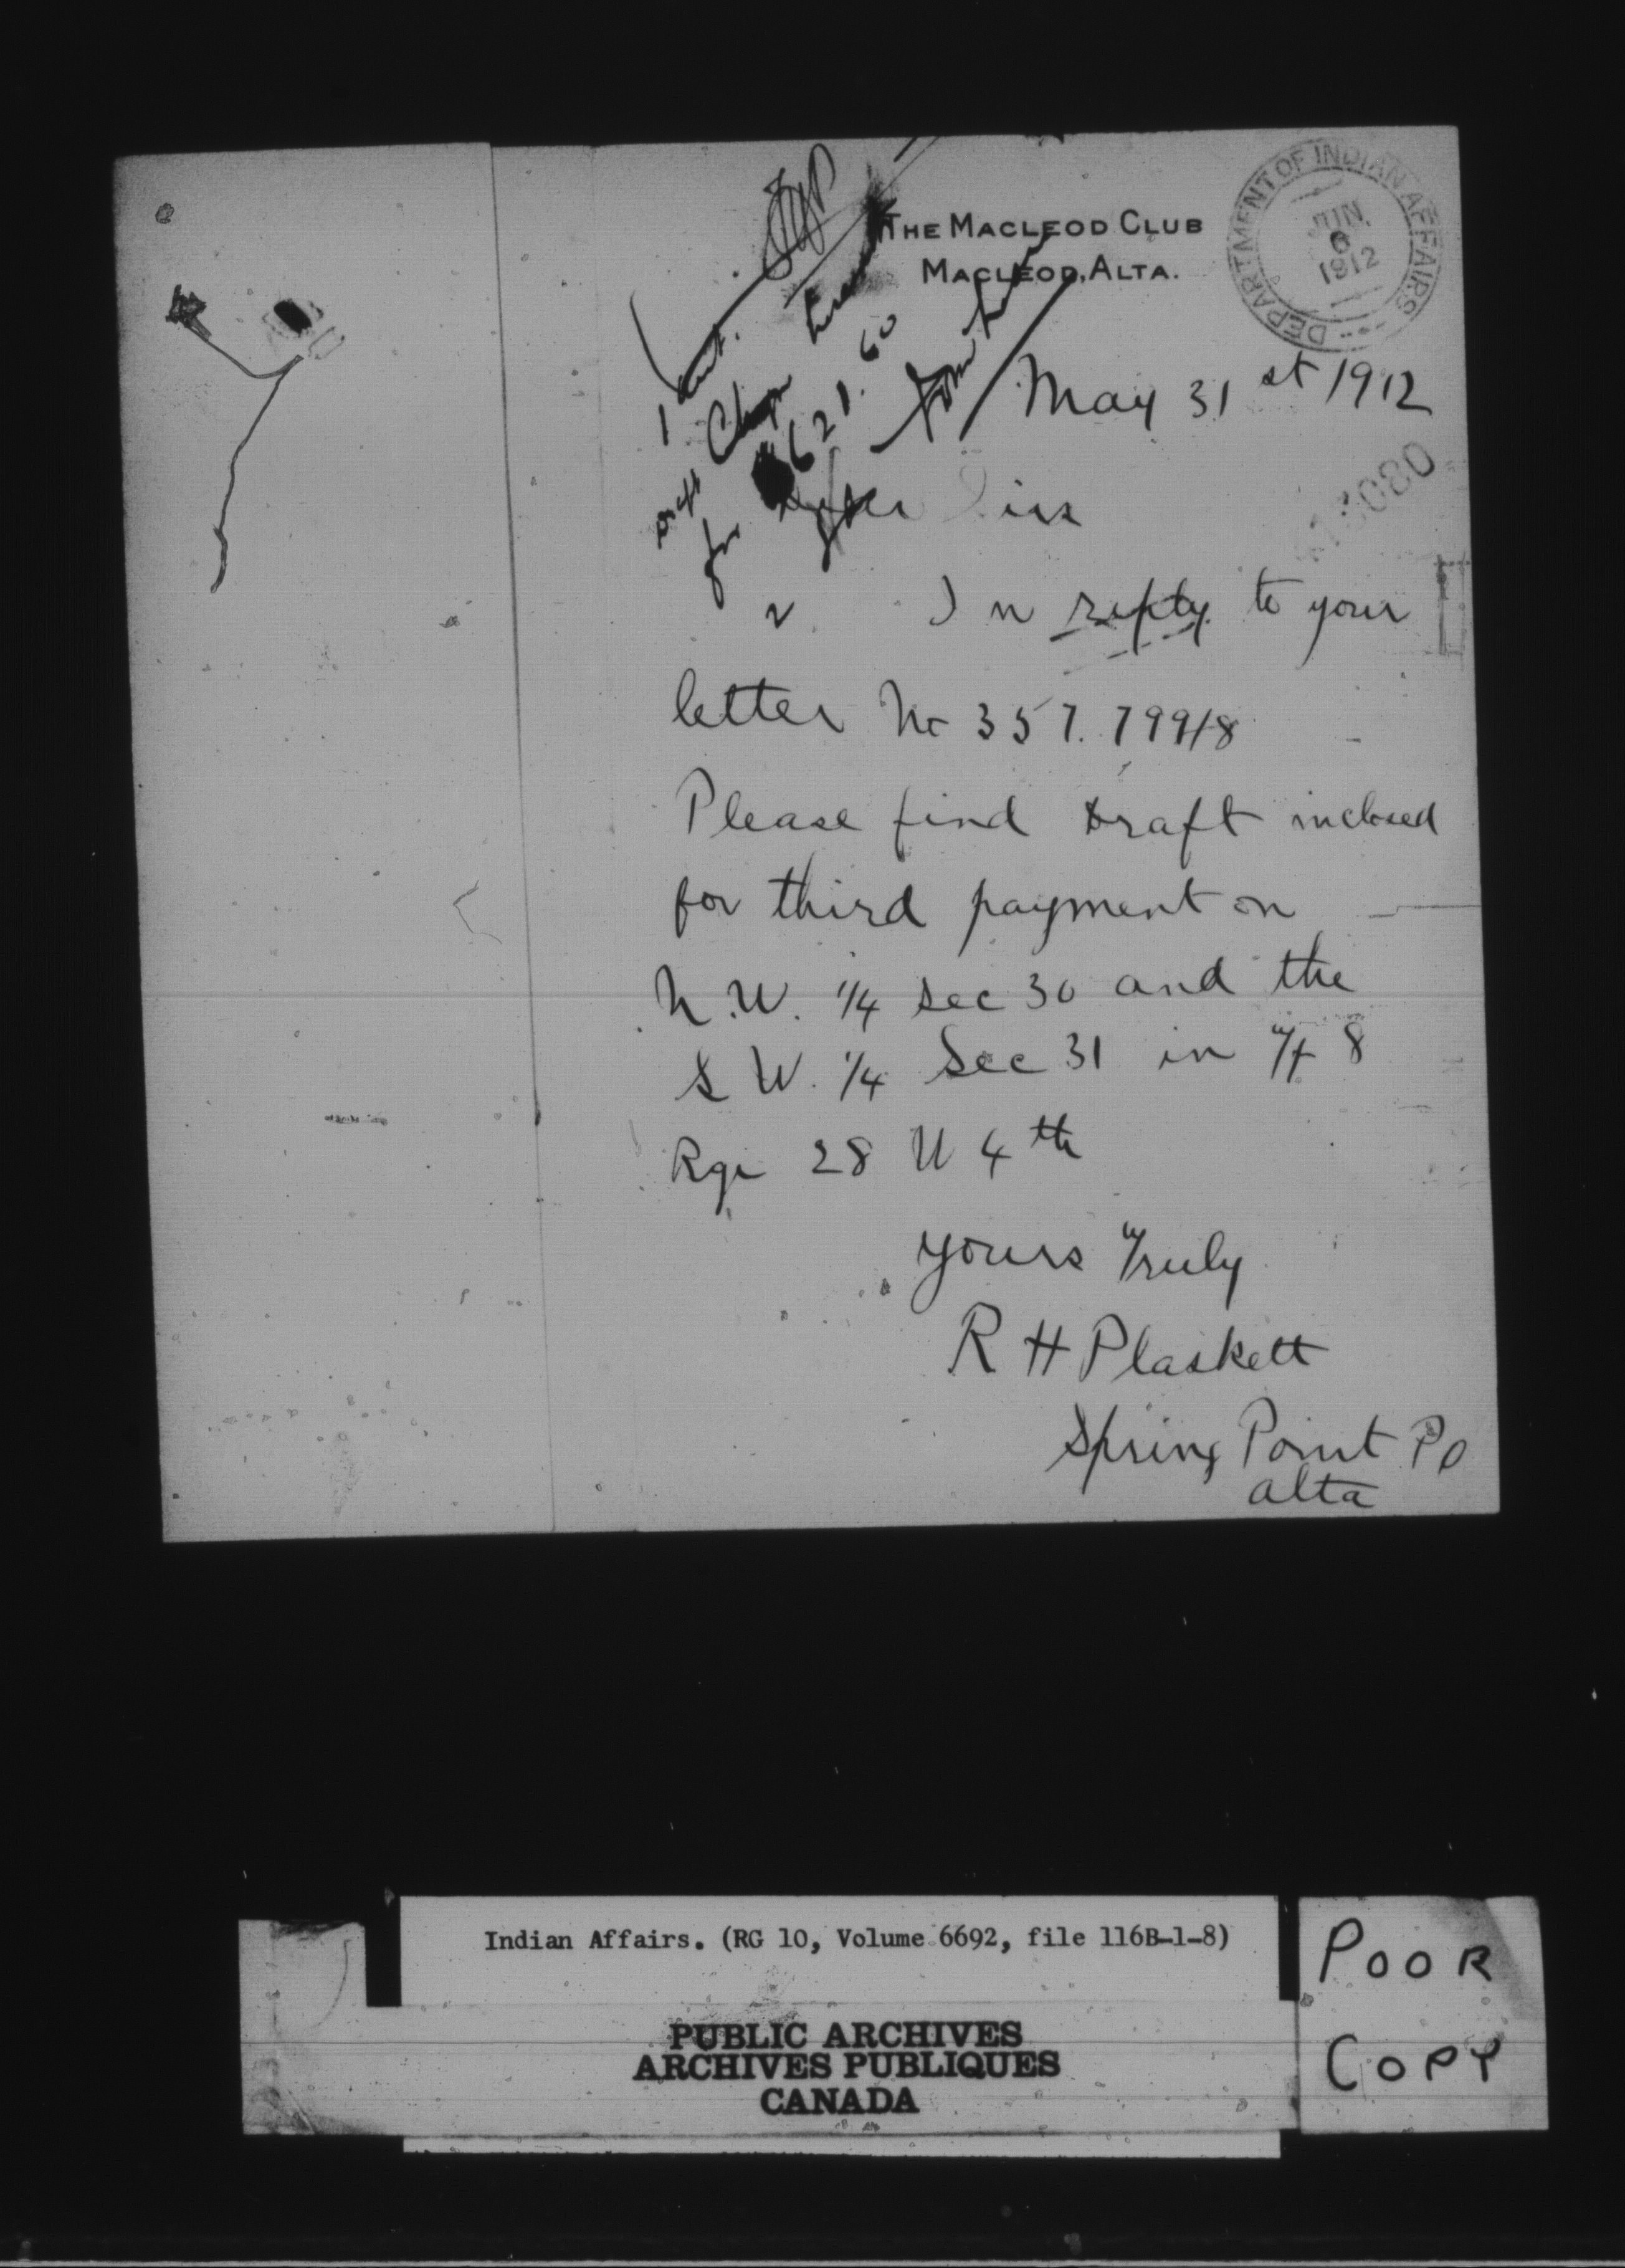 THE MACLEOD CLUB
MACLEOD, ALTA.
DEPARTMENT OF INDIAN AFFAIRS
JUN. 6 1912
May 31st 1912
Draft
for $621.60
Sirs
In reply to your
letter No 357.799/8
Please find Draft inclosed
for third payment on
N.W. 1/4 Sec 30 and the
S W. 1/4 Sec 31 in Tp 8
Rge 28 W 4th
yours Truly
R H Plaskett
Spring Point PO
alta
Indian Affairs. (RG 10, Volume 6692, file 116B-1-8)
PUBLIC ARCHIVES
ARCHIVES PUBLIQUES
CANADA
POOR
COPY